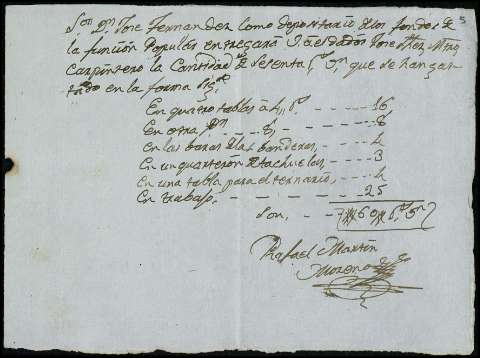 5
Son Dn. Jose Fernandez como depositario de los fondos de
la función Popular entregará Jose Mro
Carpintero la Cantidad de sesenta rs. vn. que se han gas
tado en la forma sigte.
En quatro tablas á 4 rs. 16
En otra 8
En las baras de las banderas, 4
En un quarteron de tachuelas, 3
En una tabla para el ternario, 4
En trabajo. 25
Son. 60 rs. vn
Rafael Martin
Moreno